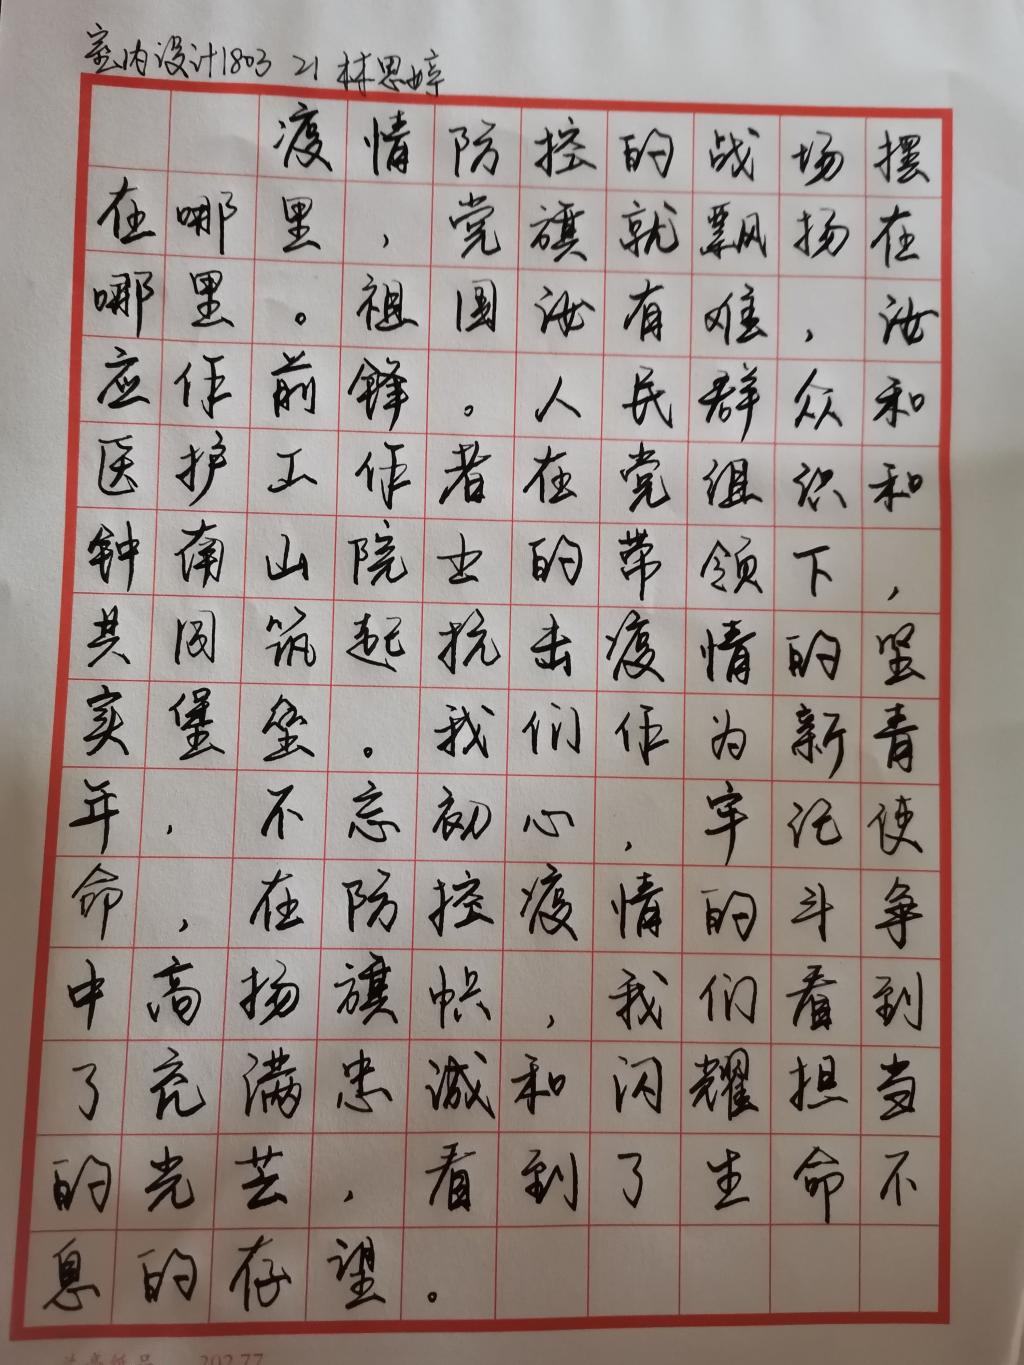 室内设计1803 21 林思婷
疫情防控的战场摆
在哪里，党旗就飘扬在
哪里。祖国汝有难，汝
应作前锋。人民群众和
医护工作者在党组识和
钟南山院士的带领下，
共同筑起抗击疫情的坚
实堡垒。我们作为新青
年，不忘初心，牢记使
命，在防控疫情的斗争
中高扬旗帜，我们看到
了充满忠诚和闪耀担当
的光芒，看到了生命不
息的存望。